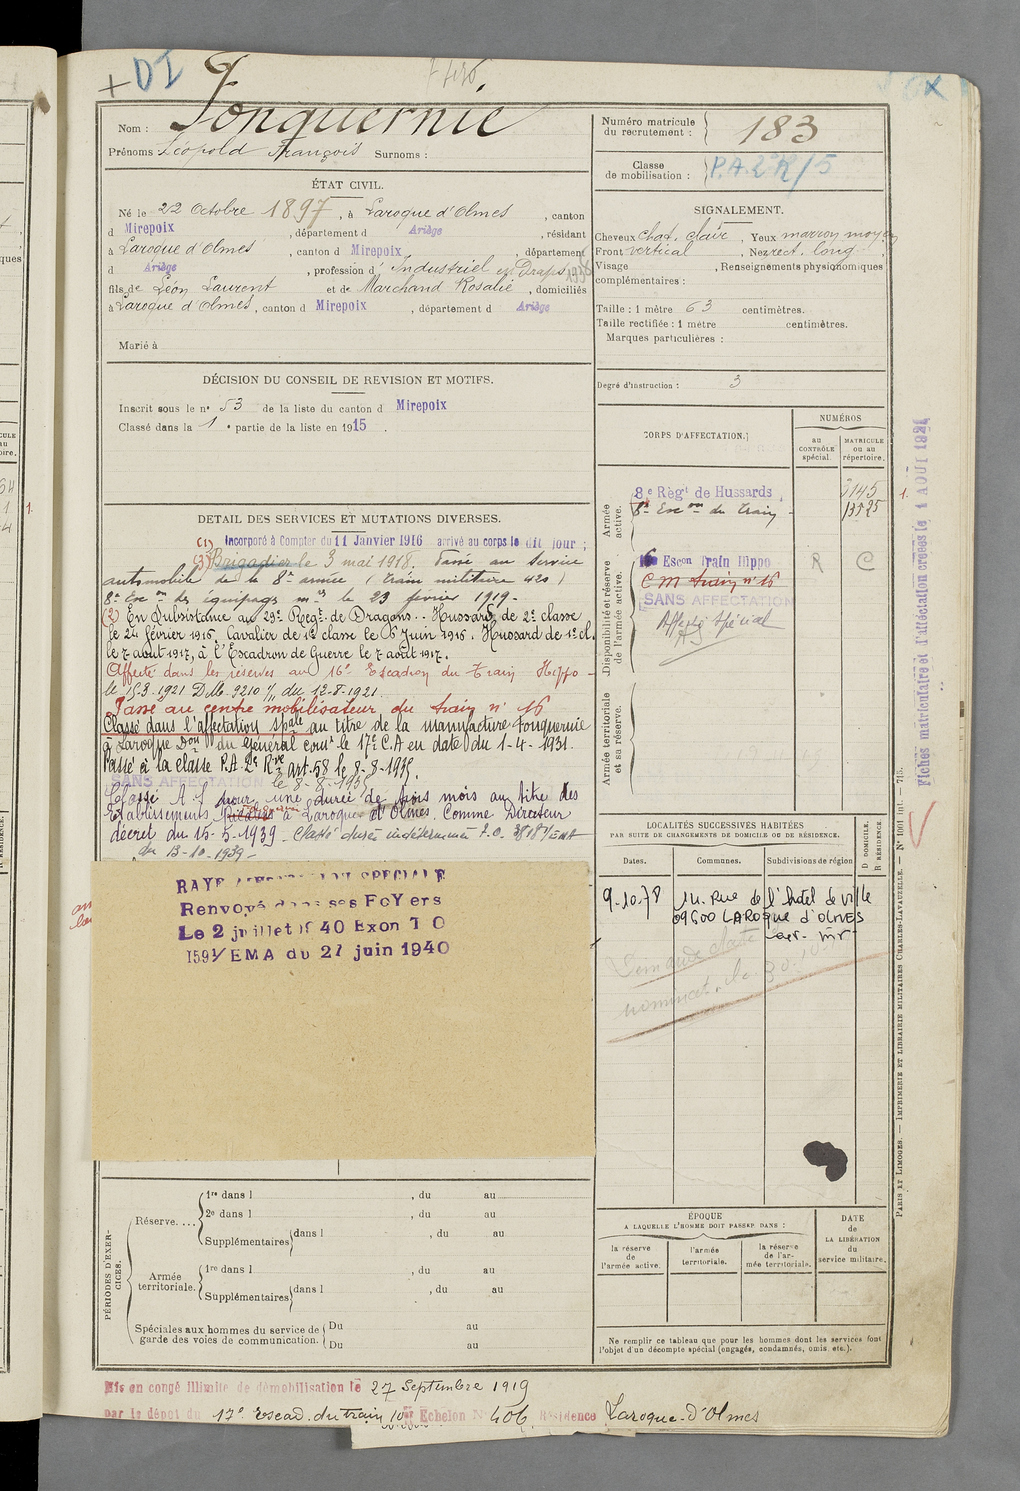 + DI
Nom : Fonquernie
Prénoms : Léopold François Surnoms :
Numéro matricule du recrutement : 183
Classe de mobilisation : P.A. 2e R/5
ÉTAT CIVIL.
Né le 22 Octobre 1897, à Laroque d'Olmes, canton
d Mirepoix, département d Ariège, résidant
à Laroque d'Olmes, canton d Mirepoix, département
d Ariège, profession d'Industriel en Draps
fils de Léon Laurent et de Marchand Rosalie, domiciliés
à Laroque d'Olmes, canton d Mirepoix, département d Ariège
Marié à
SIGNALEMENT.
Cheveux chat. clair, Yeux marron moyen
Front vertical, Nez rect. long
Visage , Renseignements physionomiques
complémentaires :
Taille : 1 mètre 63 centimètres.
Taille rectifiée : 1 mètre centimètres.
Marques particulières :
Degré d'instruction : 3
DÉCISION DU CONSEIL DE REVISION ET MOTIFS.
Inscrit sous le n° 53 de la liste du canton d Mirepoix
Classé dans la 1e partie de la liste en 1915.
CORPS D'AFFECTATION.
NUMÉROS
au CONTRÔLE spécial.
MATRICULE ou au répertoire.
Armée active.
8e Régt de Hussards 3145
8e Esc on du Train 13525
Disponibilité et réserve de l'armée active.
16e Escon Train Hippo R C
C M train n° 16
SANS AFFECTATION
Affecté Spécial
Armée territoriale et sa réserve.
DETAIL DES SERVICES ET MUTATIONS DIVERSES.
(1) Incorporé à Compter du 11 Janvier 1916 arrivé au corps le dit jour ;
(3) Brigadier le 3 mai 1918. Passé au Service
automobile de la 8e armée (train militaire 420)
8e Esc on des équipages mres le 23 février 1919.
(2) En Subsistance au 29e Regt de Dragons. Hussard de 2e classe
le 24 février 1916. Cavalier de 1e classe le 6 Juin 1916. Hussard de 1e cl.
le 7 août 1917, à l'Escadron de Guerre le 7 août 1917.
Affecté dans les réserves au 16e Escadron du Train Hippo
le 15.3.1921 D.M. 9210 1/11 du 12-8-1921.
Passé au centre mobilisateur du train n° 16
Classé dans l'affectation spale au titre de la manufacture Fonquernie
à Laroque Don du Général comt le 17e C.A en date du 1-4-1931.
Passé à la classe P.A. 2e Rve art. 58 le 8-8-1935.
SANS AFFECTATION le 8-8-1935
Classé A.S pour une durée de trois mois au titre des
Etablissements à Laroque d'Olmes. Comme Directeur
décret du 15-5-1939 - Classé durée indéterminée F.O. 38187/EMA
du 13-10-1939 -
RAYE AFFECTATION SPECIALE
Renvoyé dans ses FoYers
Le 2 juillet 1940 Exon T O
1591/EMA du 27 juin 1940
LOCALITÉS SUCCESSIVES HABITÉES
PAR SUITE DE CHANGEMENTS DE DOMICILE OU DE RÉSIDENCE.
Dates. Communes. Subdivisions de région
D DOMICILE. R RÉSIDENCE.
9.10.78 14. Rue de l'hotel de ville
09600 LAROque d'OLMES
PÉRIODES D'EXERCICES.
Réserve.... 1re dans l , du au
2e dans l , du au
Supplémentaires dans l , du au
Armée territoriale. 1re dans l , du au
Supplémentaires dans l , du au
Spéciales aux hommes du service de garde des voies de communication. Du au
Du au
ÉPOQUE
A LAQUELLE L'HOMME DOIT PASSER DANS :
la réserve de l'armée active.
l'armée territoriale.
la réserve de l'armée territoriale.
DATE de LA LIBÉRATION du service militaire.
Ne remplir ce tableau que pour les hommes dont les services font
l'objet d'un décompte spécial (engagés, condamnés, omis, etc.).
Mis en congé illimité de démobilisation le 27 Septembre 1919
par le dépot du 17e escad. du train 10e Echelon N° 406 Résidence Laroque-d'Olmes
Fiches matriculaire et d'affectation créées le 1 AOUT 1924
PARIS ET LIMOGES. — IMPRIMERIE ET LIBRAIRIE MILITAIRES CHARLES-LAVAUZELLE. — N° 1001 int. — 715.